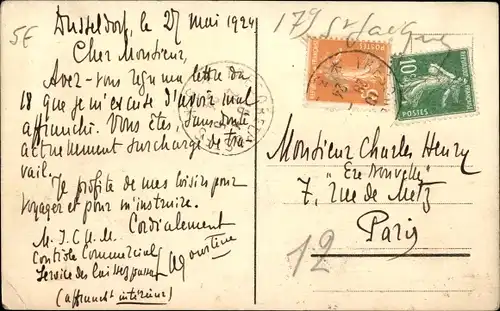 5E
Dusseldorf, le 27 mai 1924
Cher Monsieur,
Avez-vous reçu ma lettre du
18 que je m'excuse d'avoir mal
affranchi. Vous êtes, sans doute
actuellement surchargé de tra
vail.
Je profite de mes loisirs pour
voyager et pour m'instruire.
Cordialement
M.I.C.U.M.
Contrôle Commercial
Service des laissez passer
(affranch<sup>t</sup> intérieur)
179 St Jacques
POSTES
10
POSTES
Monsieur Charles Henry
"Ere Nouvelle"
7, rue de Metz
Paris
12